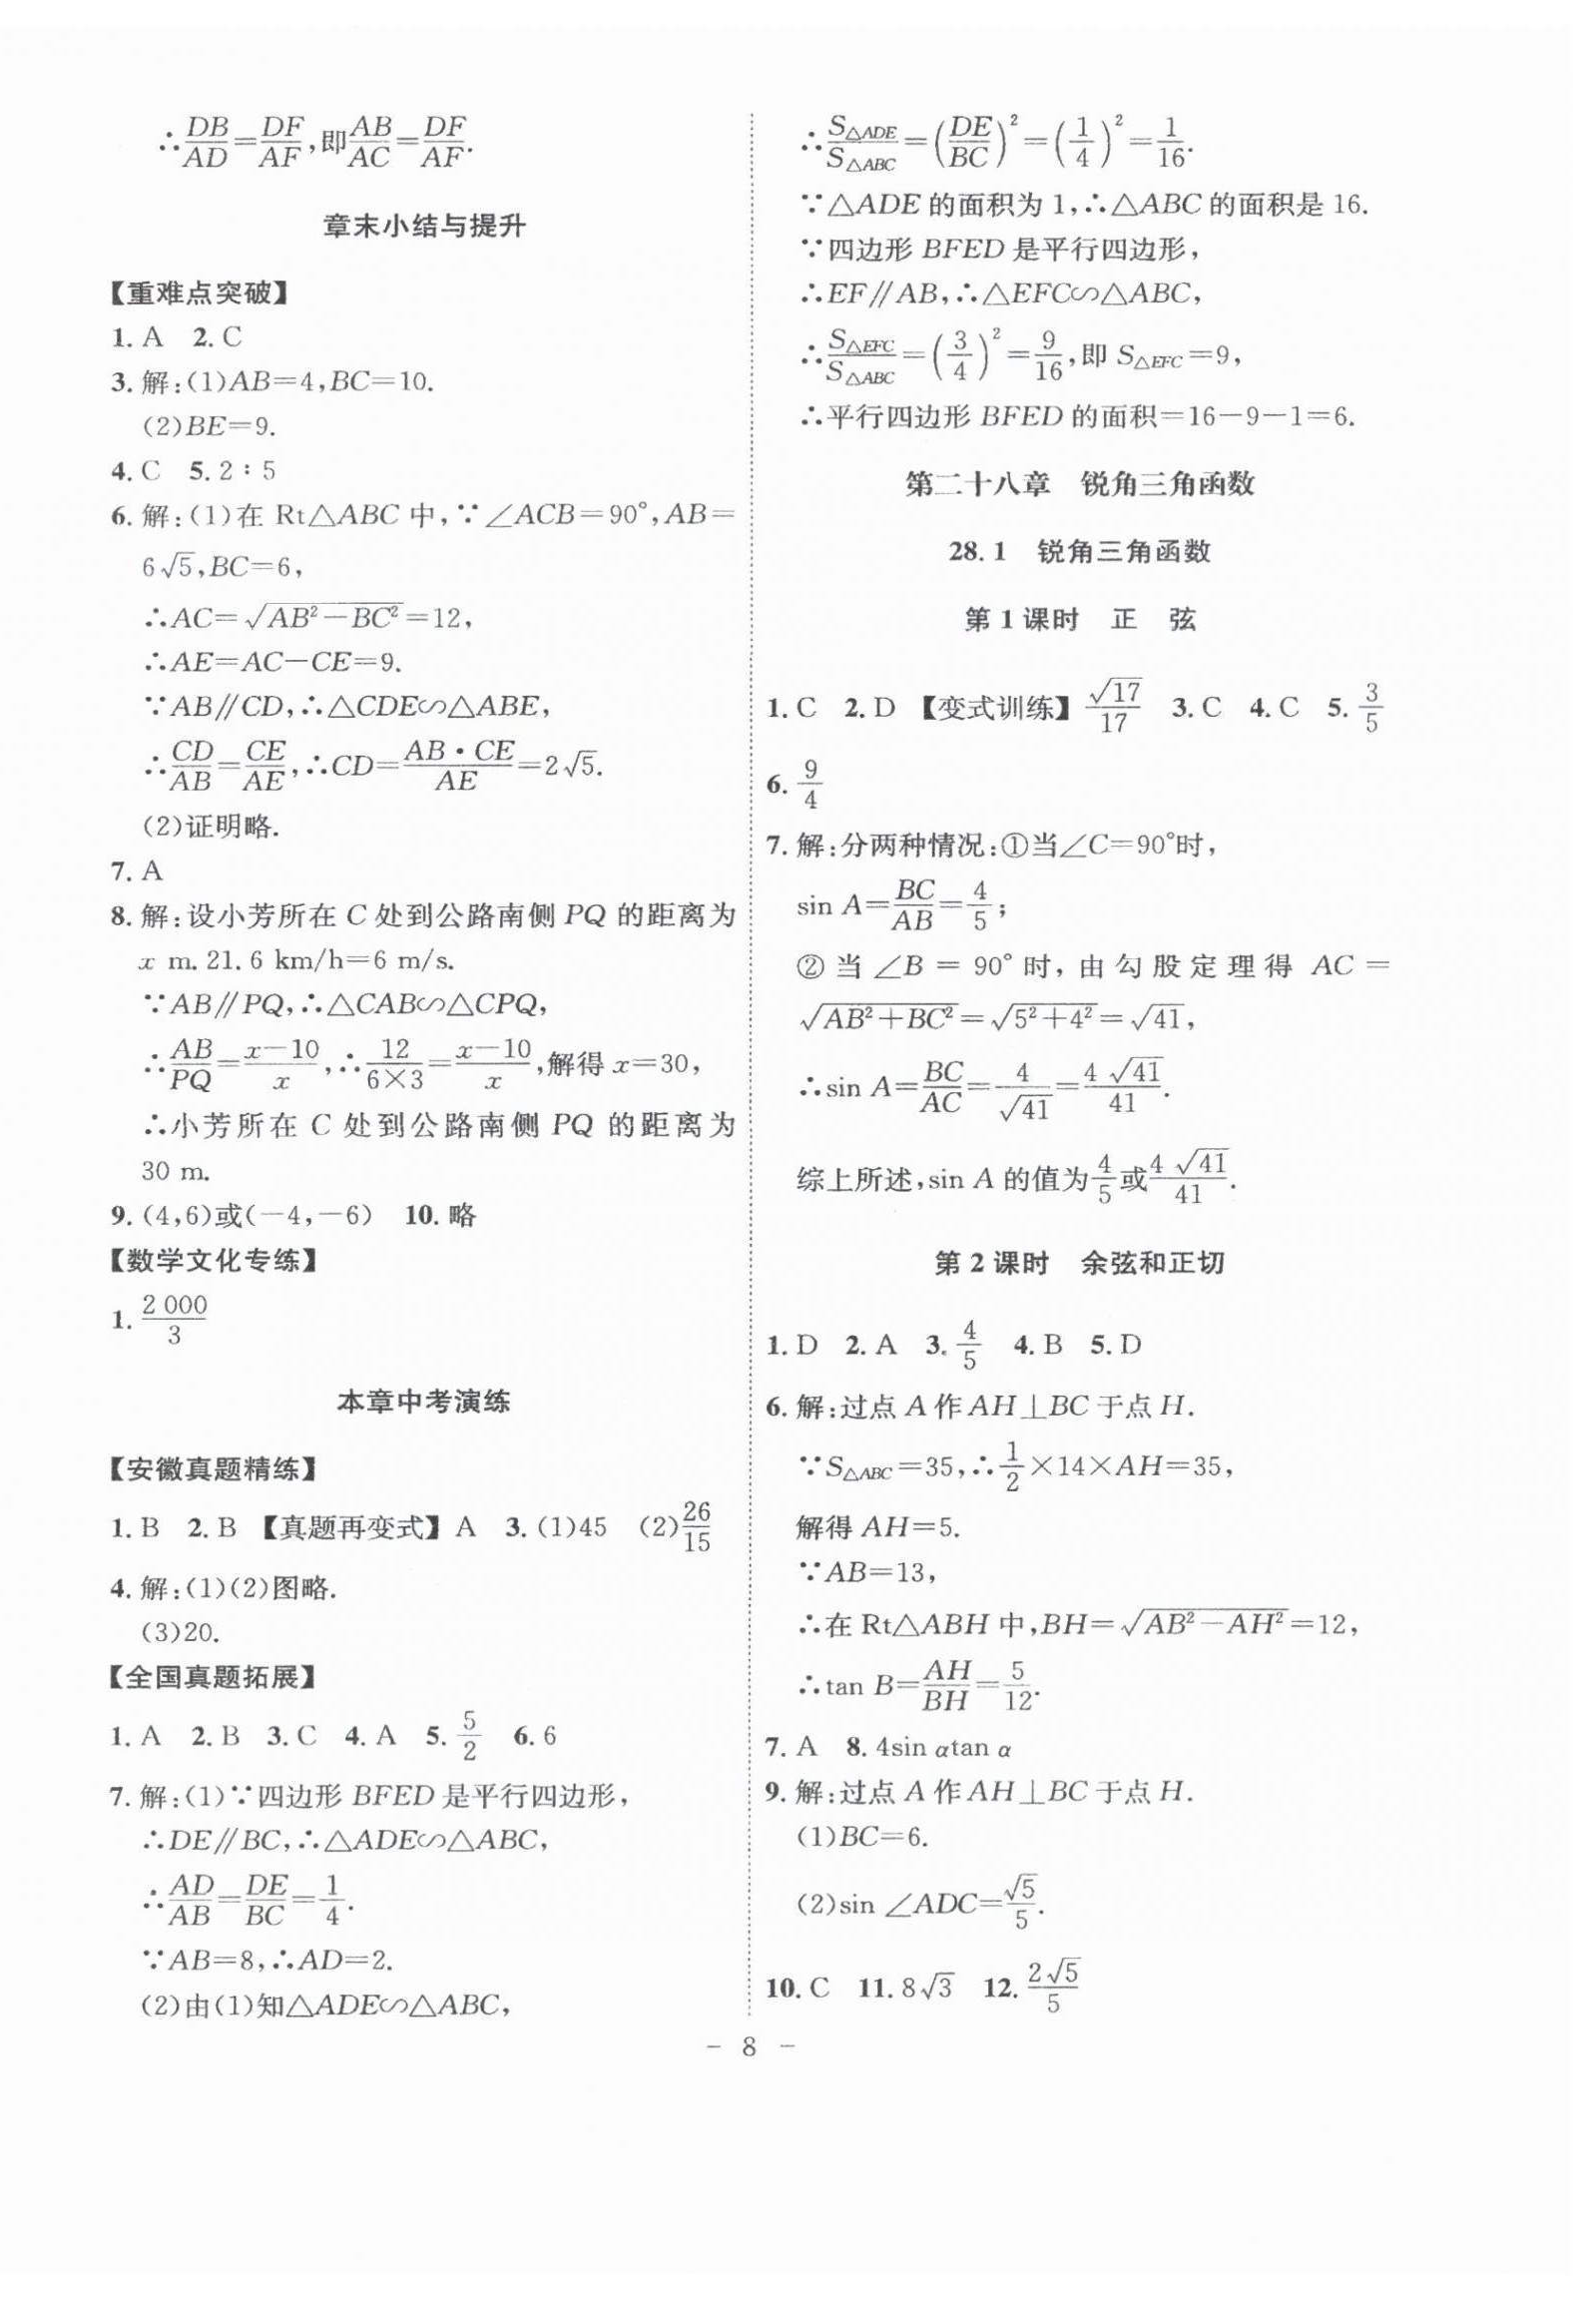 ∴DB/AD=DF/AF,即AB/AC=DF/AF.
章末小结与提升
【重难点突破】
1. A 2. C
3. 解:(1)AB=4,BC=10.
(2)BE=9.
4. C 5. 2∶5
6. 解:(1)在 Rt△ABC 中,∵∠ACB=90°,AB=
6√5,BC=6,
∴AC=√(AB²-BC²)=12,
∴AE=AC-CE=9.
∵AB∥CD,∴△CDE∽△ABE,
∴CD/AB=CE/AE,∴CD=(AB·CE)/AE=2√5.
(2)证明略.
7. A
8. 解:设小芳所在 C 处到公路南侧 PQ 的距离为
x m. 21.6 km/h=6 m/s.
∵AB∥PQ,∴△CAB∽△CPQ,
∴AB/PQ=(x-10)/x,∴12/(6×3)=(x-10)/x,解得 x=30,
∴小芳所在 C 处到公路南侧 PQ 的距离为
30 m.
9. (4,6)或(-4,-6) 10. 略
【数学文化专练】
1. 2 000/3
本章中考演练
【安徽真题精练】
1. B 2. B 【真题再变式】A 3. (1)45 (2)26/15
4. 解:(1)(2)图略.
(3)20.
【全国真题拓展】
1. A 2. B 3. C 4. A 5. 5/2 6. 6
7. 解:(1)∵四边形 BFED 是平行四边形,
∴DE∥BC,∴△ADE∽△ABC,
∴AD/AB=DE/BC=1/4.
∵AB=8,∴AD=2.
(2)由(1)知△ADE∽△ABC,
∴S△ADE/S△ABC=(DE/BC)²=(1/4)²=1/16.
∵△ADE 的面积为 1,∴△ABC 的面积是 16.
∵四边形 BFED 是平行四边形,
∴EF∥AB,∴△EFC∽△ABC,
∴S△EFC/S△ABC=(3/4)²=9/16,即 S△EFC=9,
∴平行四边形 BFED 的面积=16-9-1=6.
第二十八章 锐角三角函数
28.1 锐角三角函数
第 1 课时 正 弦
1. C 2. D 【变式训练】√17/17 3. C 4. C 5. 3/5
6. 9/4
7. 解:分两种情况:①当∠C=90°时,
sin A=BC/AB=4/5;
②当∠B=90°时,由勾股定理得 AC=
√(AB²+BC²)=√(5²+4²)=√41,
∴sin A=BC/AC=4/√41=4√41/41.
综上所述,sin A 的值为4/5或4√41/41.
第 2 课时 余弦和正切
1. D 2. A 3. 4/5 4. B 5. D
6. 解:过点 A 作 AH⊥BC 于点 H.
∵S△ABC=35,∴1/2×14×AH=35,
解得 AH=5.
∵AB=13,
∴在 Rt△ABH 中,BH=√(AB²-AH²)=12,
∴tan B=AH/BH=5/12.
7. A 8. 4sin αtan α
9. 解:过点 A 作 AH⊥BC 于点 H.
(1)BC=6.
(2)sin ∠ADC=√5/5.
10. C 11. 8√3 12. 2√5/5
- 8 -